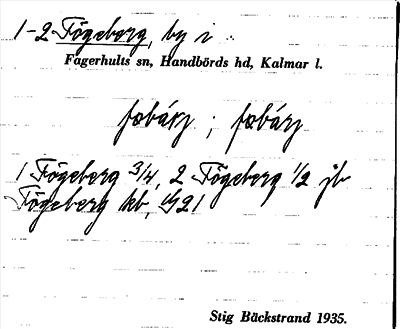 1-2 Fögeberg, by i
Fagerhults sn, Handbörds hd, Kalmar l.
fœbárj ; fœbárj
1 Fögeberg 3/4, 2 Fögeberg 1/2 jb
Fögeberg kb, GS21
Stig Bäckstrand 1935.